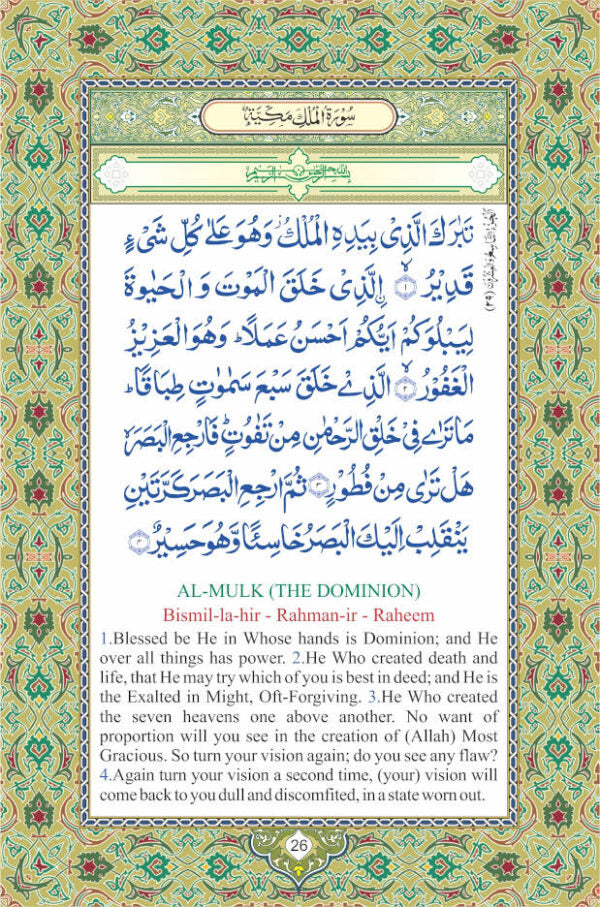 سُوْرَةُ الْمُلْكِ مَكِّيَّةٌ
بِسْمِ اللّٰهِ الرَّحْمٰنِ الرَّحِيْمِ
تَبٰرَكَ الَّذِىْ بِيَدِهِ الْمُلْكُ ز وَهُوَ عَلٰى كُلِّ شَىْءٍ
قَدِيْرٌ ۙ﴿۱﴾ اۨلَّذِىْ خَلَقَ الْمَوْتَ وَ الْحَيٰوةَ
لِيَبْلُوَكُمْ اَيُّكُمْ اَحْسَنُ عَمَلًا ؕ وَهُوَ الْعَزِيْزُ
الْغَفُوْرُ ۙ﴿۲﴾ الَّذِىْ خَلَقَ سَبْعَ سَمٰوٰتٍ طِبَاقًا ؕ
مَا تَرٰى فِىْ خَلْقِ الرَّحْمٰنِ مِنْ تَفٰوُتٍ ؕ فَارْجِعِ الْبَصَرَ ۙ
هَلْ تَرٰى مِنْ فُطُوْرٍ ﴿۳﴾ ثُمَّ ارْجِعِ الْبَصَرَ كَرَّتَيْنِ
يَنْقَلِبْ اِلَيْكَ الْبَصَرُ خَاسِئًا وَّهُوَ حَسِيْرٌ ﴿۴﴾
AL-MULK (THE DOMINION)
Bismil-la-hir - Rahman-ir - Raheem
1.Blessed be He in Whose hands is Dominion; and He
over all things has power. 2.He Who created death and
life, that He may try which of you is best in deed; and He is
the Exalted in Might, Oft-Forgiving. 3.He Who created
the seven heavens one above another. No want of
proportion will you see in the creation of (Allah) Most
Gracious. So turn your vision again; do you see any flaw?
4.Again turn your vision a second time, (your) vision will
come back to you dull and discomfited, in a state worn out.
26